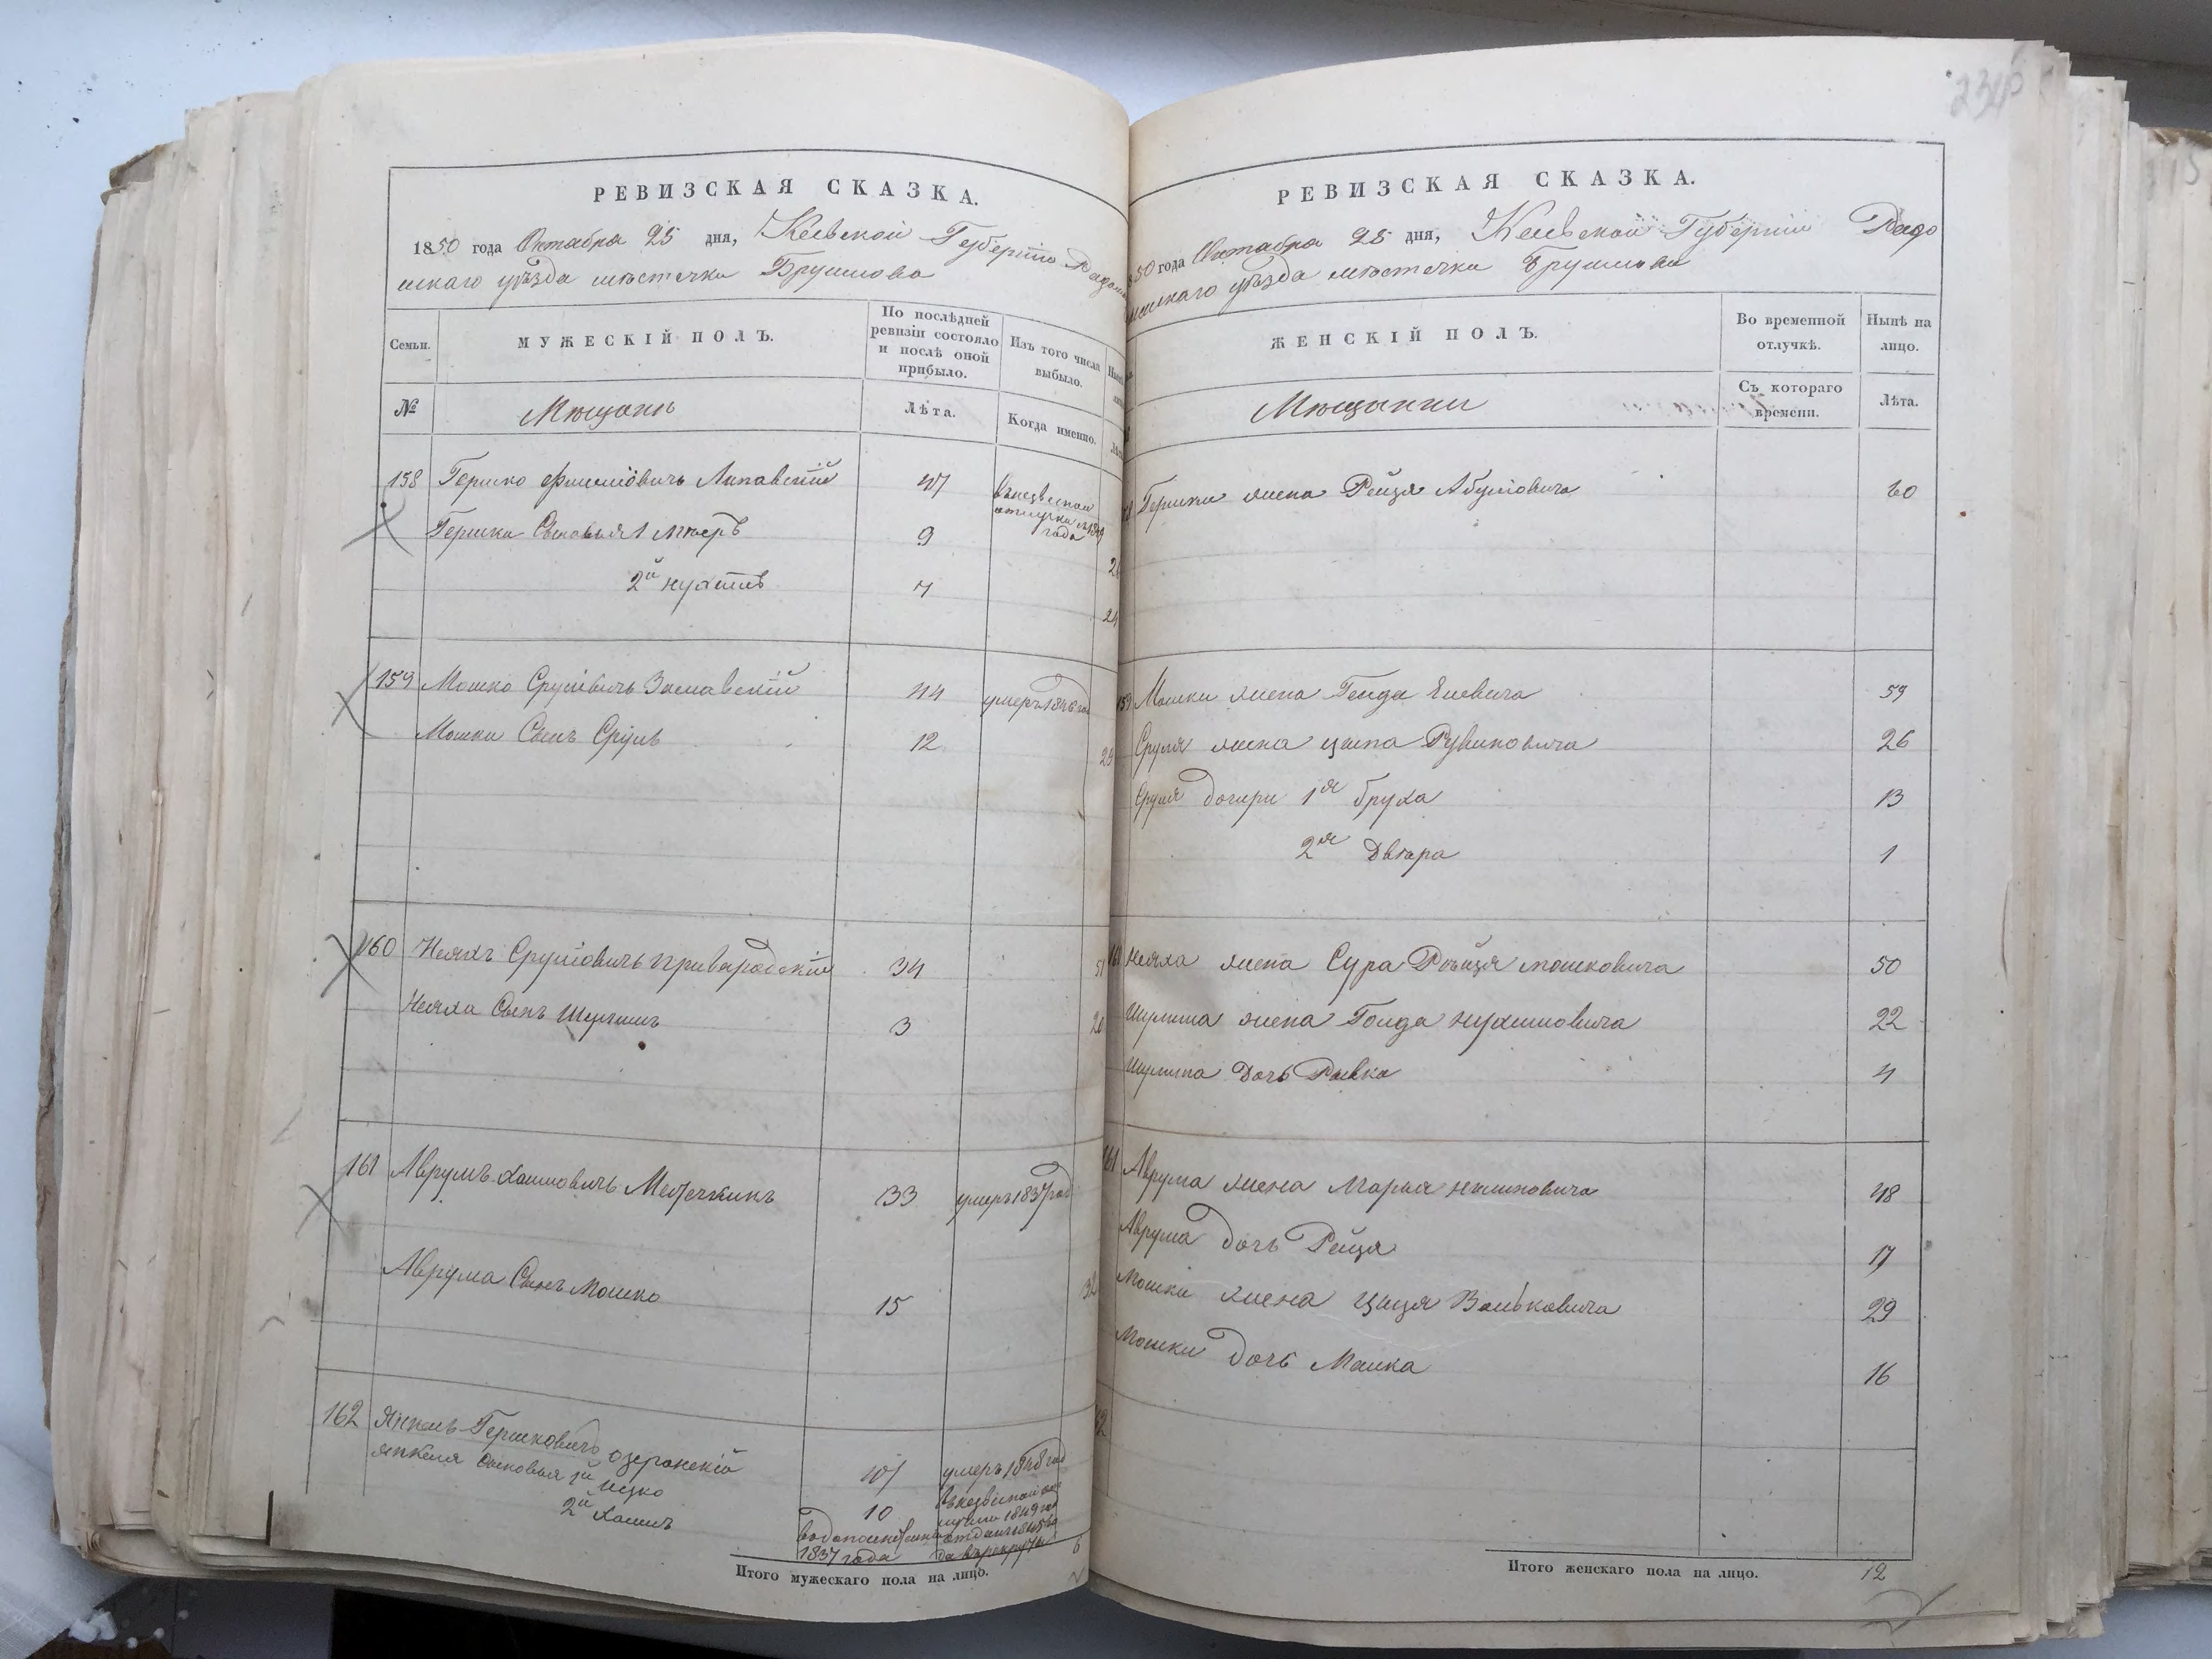 РЕВИЗСКАЯ СКАЗКА.
1850 года Октабра 25 дня, Кіевской Губерніи Радомы
слскаго уѣзда мѣстечка Брусилова
Семьи. МУЖЕСКІЙ ПОЛЪ. По послѣдней ревизіи состояло и послѣ оной прибыло. Изъ того числа выбыло.
№ Мѣщане Лѣта. Когда именно.
158 Гершко Фишліовичъ Липавскій 47 въ неизвестной
отлучки съ 1849
года
Гершка Сыновья 1 Мееръ 9
2й Нухимъ 7
24
159 Мошко Сруліовичъ Заславскій 44 умеръ 1846 год
Мошки Сынъ Сруль 12
160 Неяхъ Сруліовичъ Приварадскій 34 51
Неяха Сынъ Шулимъ 3 20
161 Аврумъ Хаимовичъ Местечкинъ 33 умеръ 1837 год
Аврума Сынъ Мошко 15 32
162 Янкель Гершковичъ Озеранскій умеръ 1848 год
Янкеля Сыновья 1й Ицко 10
2й Хаимъ
1837 года
Итого мужескаго пола на лицо. 6
РЕВИЗСКАЯ СКАЗКА.
1850 года Октабра 25 дня, Кіевской Губерніи Радо
мыслскаго уѣзда мѣстечка Брусилова
ЖЕНСКІЙ ПОЛЪ. Во временной отлучкѣ. Нынѣ на лицо.
Мѣщанки Съ котораго времени. Лѣта.
Гершки жена Рейзя Абушовича 60
159 Мошки жена Генда Елевича 59
Сруля жена Ципа Рувиновича 26
Сруля дочери 1я Бруха 13
2я Двейра 1
Неяха жена Сура Ройзя Мошковича 50
Шулима жена Голда Нухимовича 22
Шулима дочь Ривка 4
161 Аврума жена Марья 48
Аврума дочь Рейзя 17
Мошки жена Цизя Волковича 29
Мошки дочь Малка 16
162
Итого женскаго пола на лицо. 12